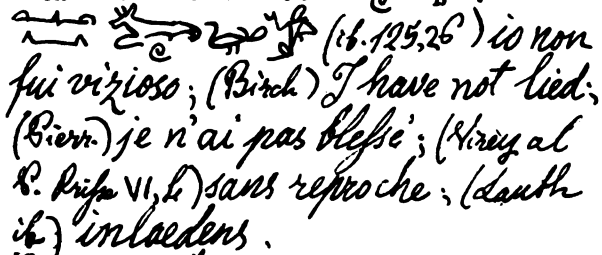 (ib. 125,26) io non
fui vizioso; (Birch) I have not lied;
(Pierr.) je n'ai pas blessé; (Virey al
P. Prisse VI, 6) sans reproche; (Lauth
ib) inlaedens.